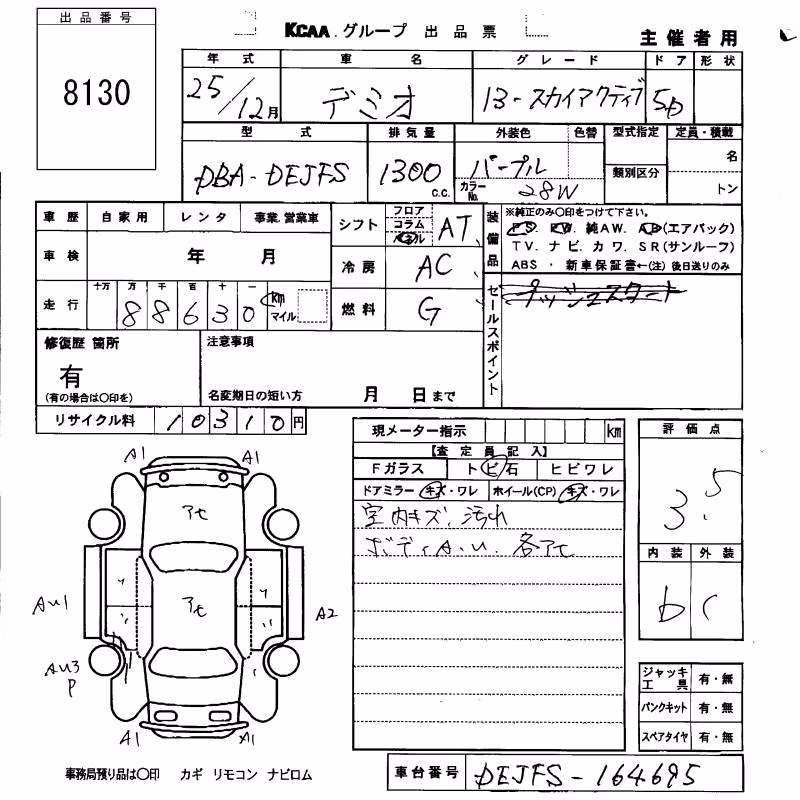 出品番号
8130
KCAA.グループ 出品票
主催者用
年式 車名 グレード ドア 形状
25/12月 デミオ 13-スカイアクティブ 5D
型式 排気量 外装色 色替 型式指定 定員・積載
DBA-DEJFS 1300c.c. パープル カラーNo. 28W 類別区分 名
トン
車歴 自家用 レンタ 事業.営業車
車検 年 月
走行 十万 万 千 百 十 一
88630 km マイル
シフト フロア コラム パネル AT
冷房 AC
燃料 G
装備品
※純正のみ〇印をつけて下さい。
PS. PW. 純AW. AB(エアバック)
TV. ナビ. カワ. SR(サンルーフ)
ABS・新車保証書←(注)後日送りのみ
セールスポイント
プッシュスタート
修復歴 箇所
有
(有の場合は〇印を)
注意事項
名変期日の短い方 月 日まで
リサイクル料 10310円
現メーター指示 km
【査定員記入】
Fガラス トビ石 ヒビワレ
ドアミラー キズ・ワレ ホイール(CP) キズ・ワレ
室内キズ、汚れ
ボディA.U. 各アセ
評価点
3.5
内装 外装
b C
A1 A1
アセ
アセ
AU1 A2
AU3
P
A1 A1
ジャッキ工具 有・無
パンクキット 有・無
スペアタイヤ 有・無
事務局預り品は〇印 カギ リモコン ナビロム
車台番号 DEJFS-164695